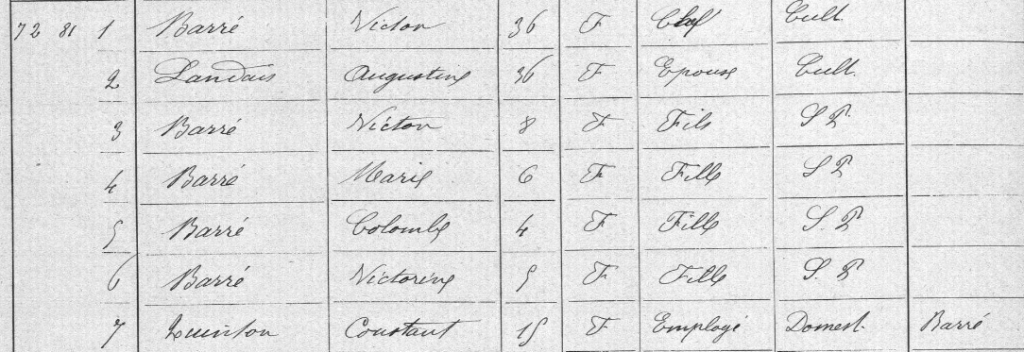 72 81 1 Barré Victor 36 F Chef Cult
2 Landais Augustine 36 F Epouse Cult.
3 Barré Victor 8 F Fils S P
4 Barré Marie 6 F Fille S P
5 Barré Colombe 4 F Fille S. P
6 Barré Victorine 5 F Fille S. P
7 Constant 15 F Employé Domest. Barré